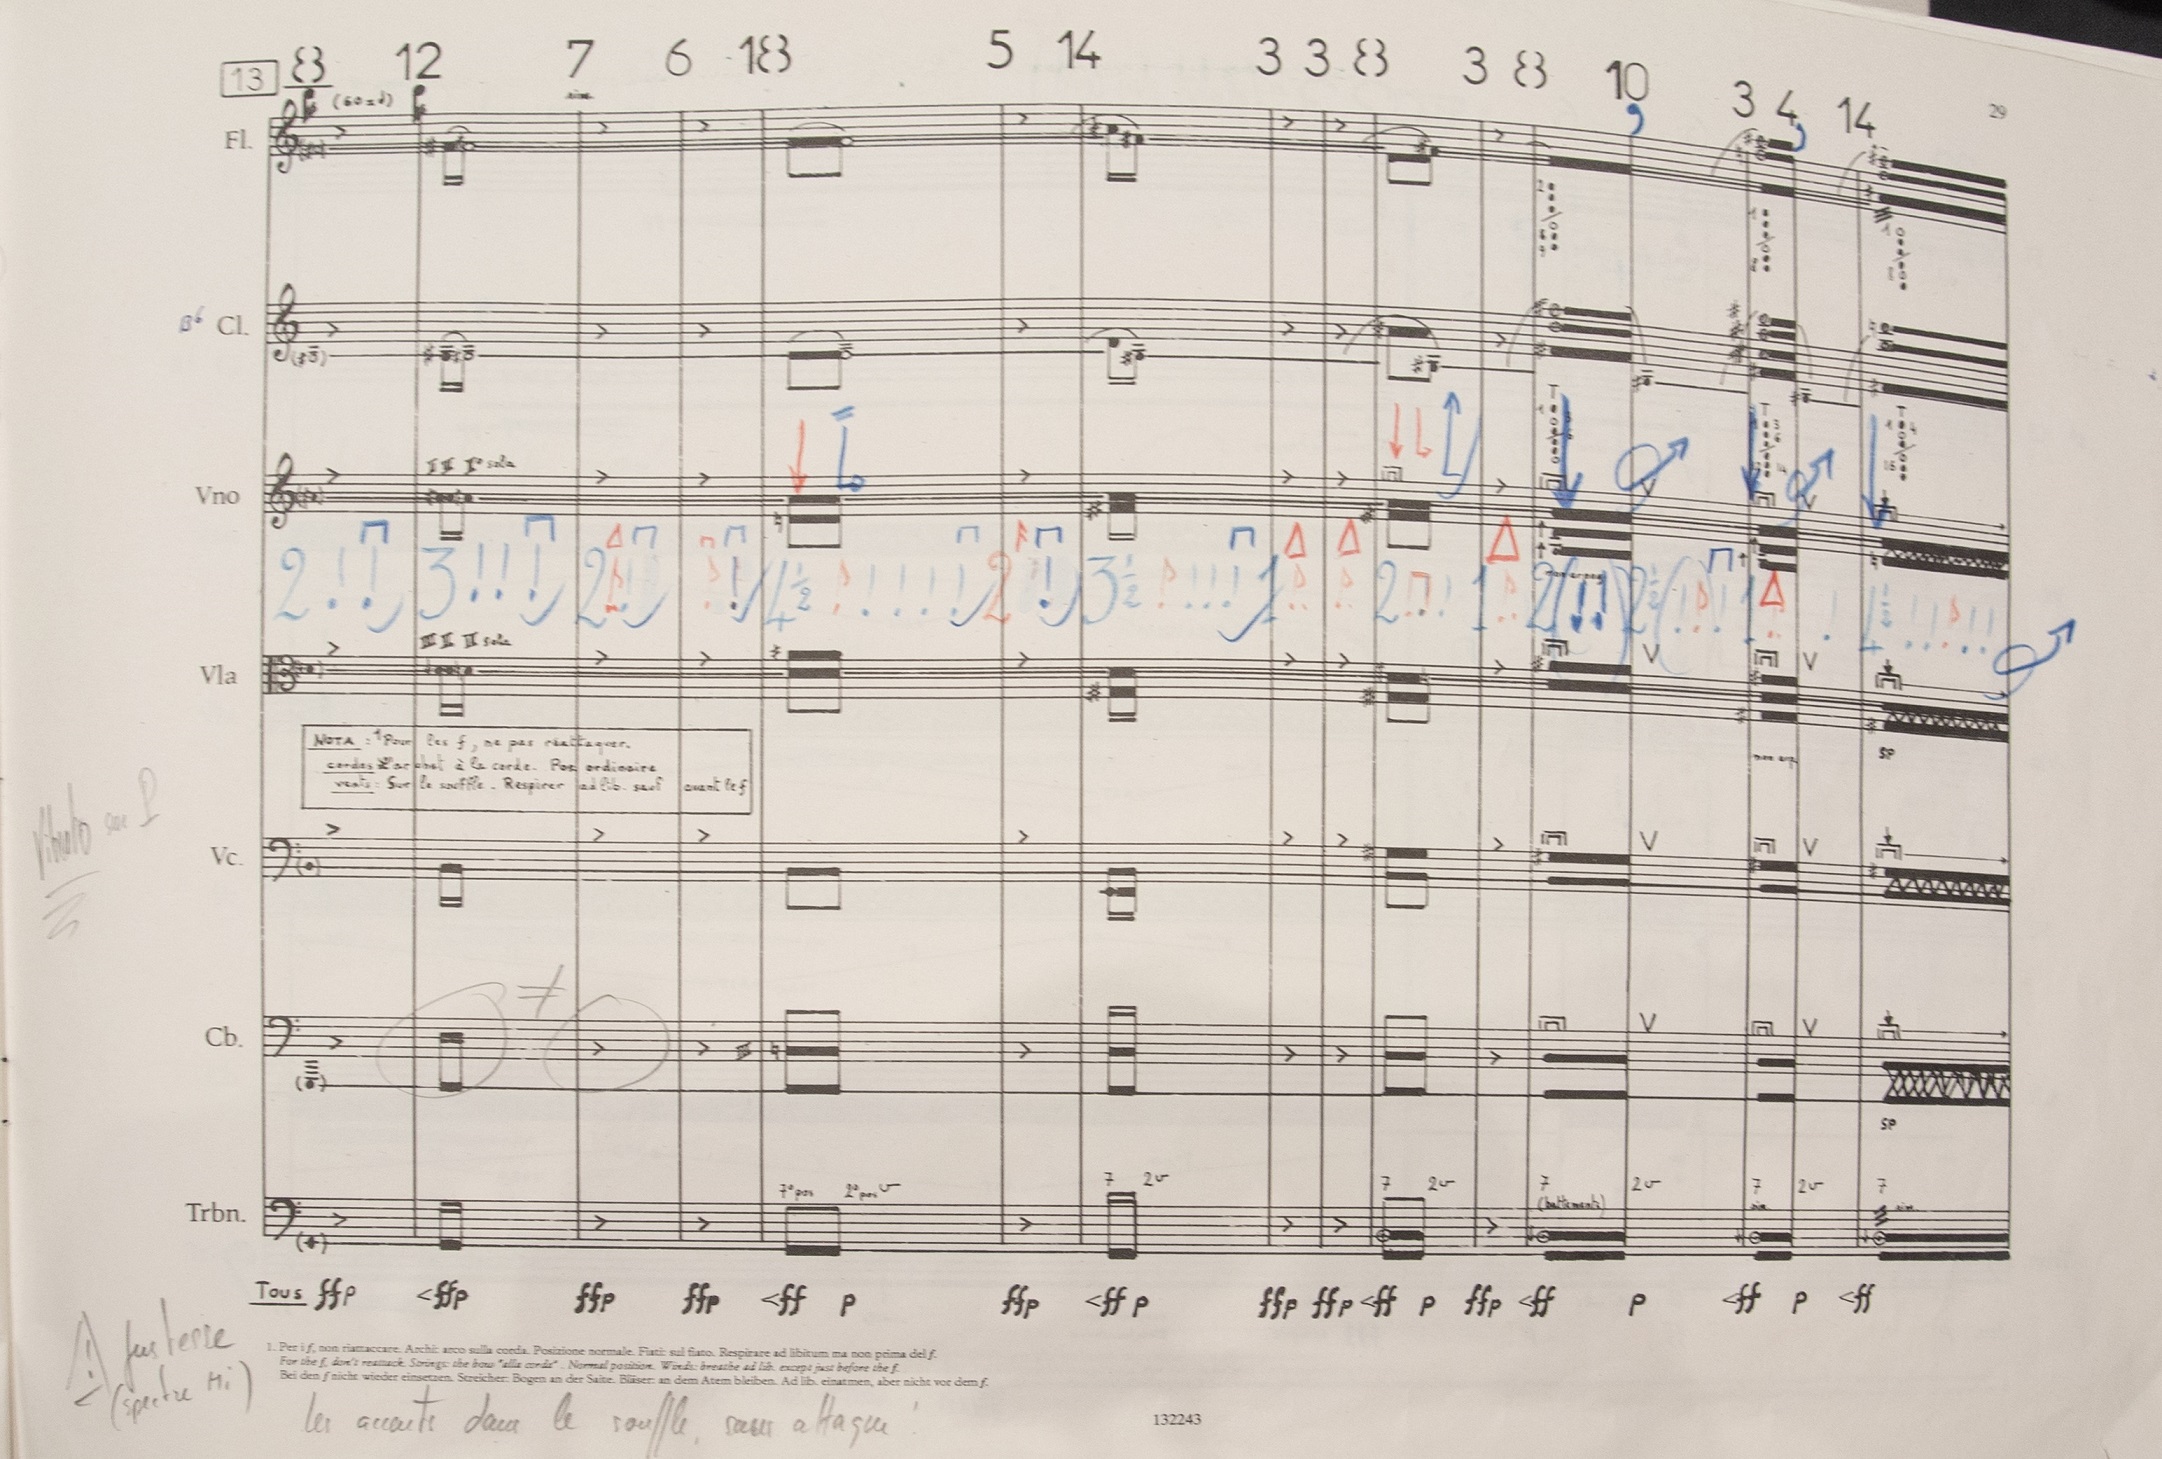 13 12 7 6 5 14 3 3 3 10 3 4 14
29
Fl.
B♭ Cl.
Vno
II I° solo
Vla
III II II solo
NOTA : ¹Pour les f, ne pas réattaquer.
cordes : L'archet à la corde. Pos ordinaire
vents : Sur le souffle. Respirer ad lib. sauf avant le f
Vibrato sur
Vc.
Cb.
≠
SP
SP
Trbn.
7° pos 2° pos 7 2 7 2 7 (battements) 2 7 2 7
Tous ffp <ffp ffp ffp <ff p ffp <ff p ffp ffp <ff p ffp <ff p <ff p <ff
! justesse
(spectre Mi)
1. Per i f, non riattaccare. Archi: arco sulla corda. Posizione normale. Fiati: sul fiato. Respirare ad libitum ma non prima del f.
For the f, don't reattack. Strings: the bow "alla corda". Normal position. Winds: breathe ad lib. except just before the f.
Bei den f nicht wieder einsetzen. Streicher: Bogen an der Saite. Bläser: an dem Atem bleiben. Ad lib. einatmen, aber nicht vor dem f.
les accents dans le souffle, sans attaque !
132243